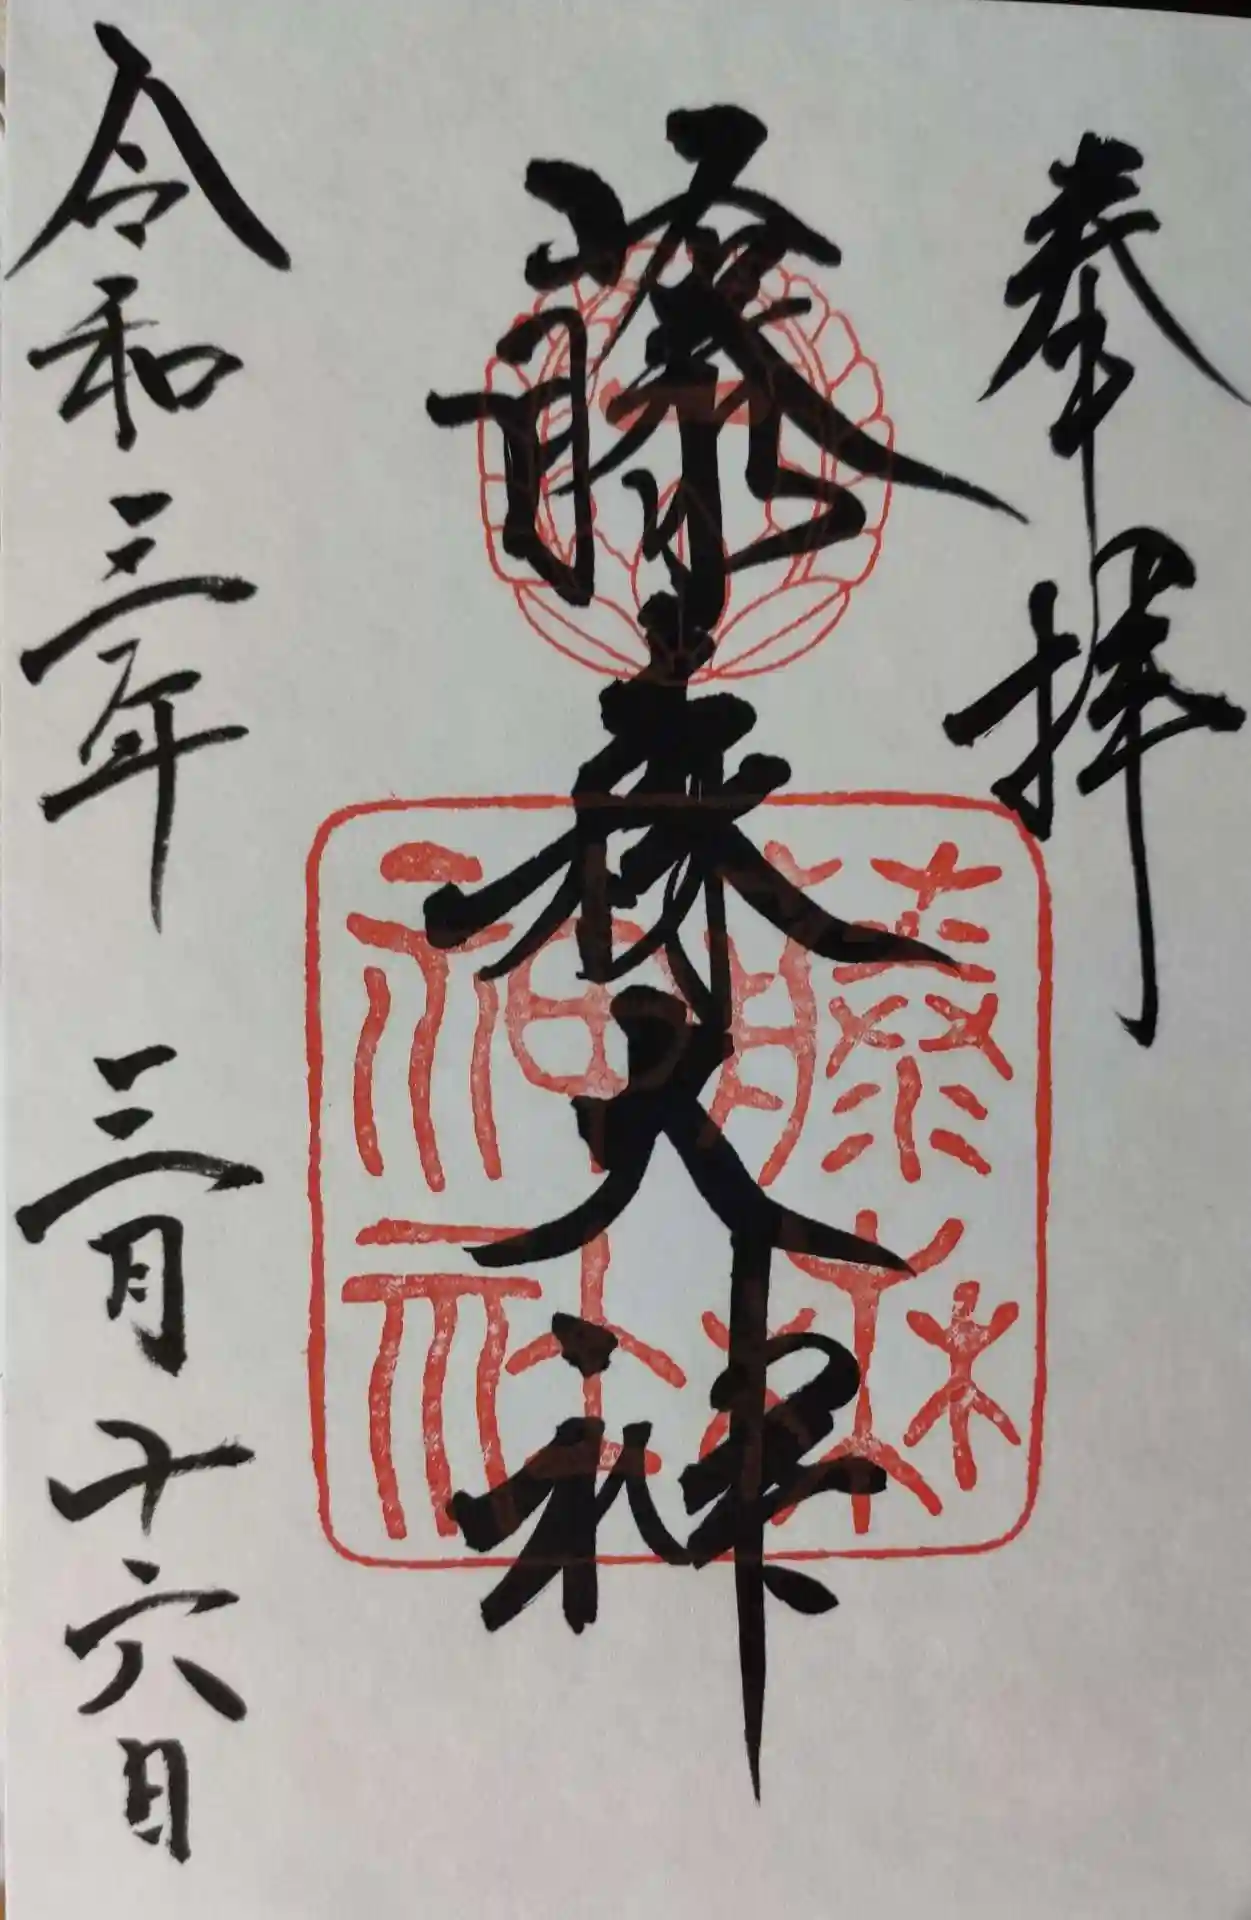 奉拝
藤森大神
藤森
神社
令和三年三月十六日